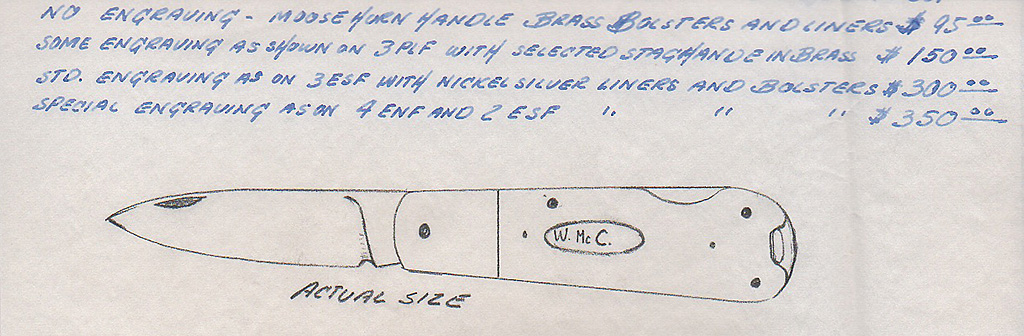 NO ENGRAVING - MOOSE HORN HANDLE BRASS BOLSTERS AND LINERS $95.00
SOME ENGRAVING AS SHOWN ON 3PLF WITH SELECTED STAG HANDLE IN BRASS $150.00
STD. ENGRAVING AS ON 3ESF WITH NICKEL SILVER LINERS AND BOLSTERS $300.00
SPECIAL ENGRAVING AS ON 4 ENF AND 2 ESF " " " $350.00
W. Mc C.
ACTUAL SIZE